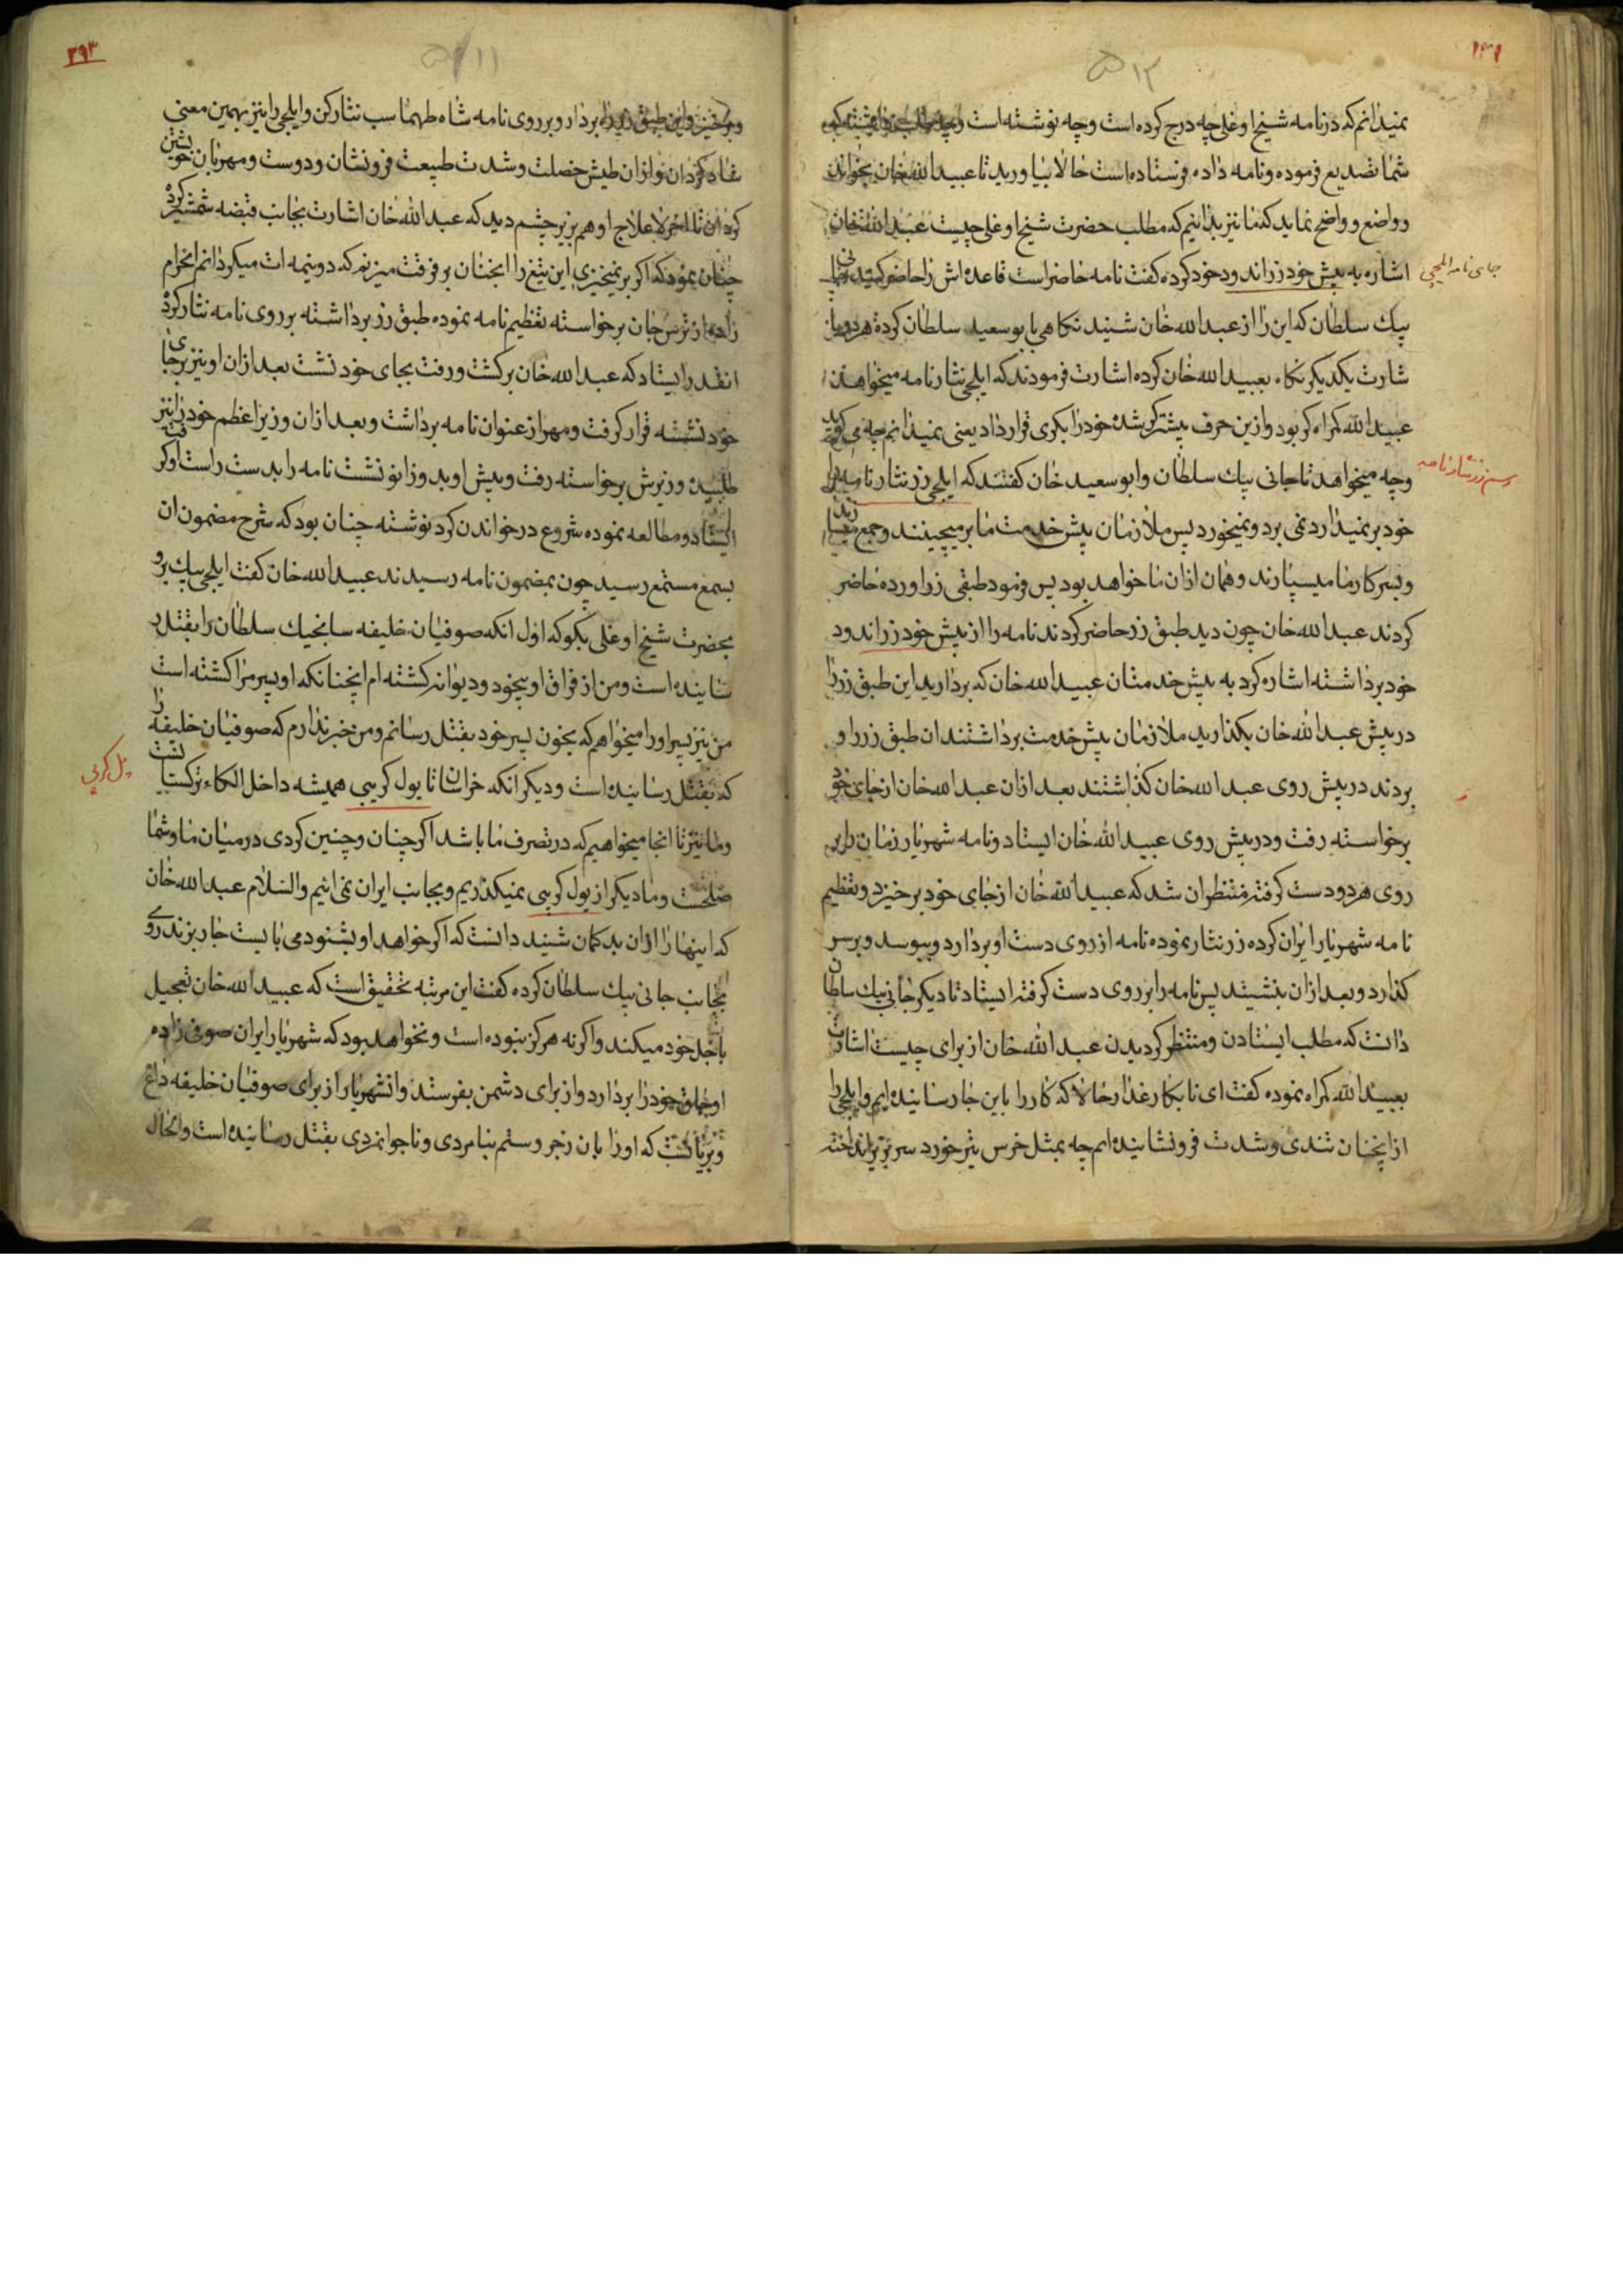 نمیدانم که در نامه شیخ اوغلی چه درج کرده است وچه نوشته است
شما تصدیع فرموده ونامه داده فرستاده است حالا بیاورید تا عبیدالله خان بخواند
وواضع وواضح نماید که ما نیز بدانیم که مطلب حضرت شیخ اوغلی چیست عبدالله خان
اشاره به پیش خود زراندود خود کرده گفت نامه حاضر است قاعده اش را حاضر کنید
جای نامه ایلچی
بیك سلطان که این را از عبدالله خان شنید نگاهی بابوسعید سلطان کرده هر دو با
شارت یکدیگر نگاه بعبیدالله خان کرده اشارت فرمودند که ایلچی نثار نامه میخواهد
عبیدالله کمراه کر بود وازین حرف بیشتر کر شده خود را بکری قرار داد یعنی نمیدانم چه می
وچه میخواهد تا جانی بیك سلطان وابوسعید خان گفتند که ایلچی زر نثار نامه را
رسم زر نثار نامه
خود بر نمیدارد نمی برد ونمیخورد پس ملازمان پیش خدمت ما برمیچینند وجمع
وبسرکار ما میسپارند وهمان ازان ما خواهد بود پس فرمود طبقی زر اورده حاضر
کردند عبدالله خان چون دید طبق زر حاضر کردند نامه را از پیش خود زراندود
خود برداشته اشاره کرد به پیش خدمتان عبیدالله خان که بردارید این طبق زر را
در پیش عبدالله خان بگذارید ملازمان پیش خدمت برداشتند ان طبق زر را و
بردند در پیش روی عبدالله خان گذاشتند بعد ازان عبدالله خان از جای خود
برخواسته رفت ودر پیش روی عبیدالله خان ایستاد ونامه شهریار زمان را بر
روی هر دو دست گرفته منتظران شد که عبیدالله خان از جای خود برخیزد وتعظیم
نامه شهریار ایران کرده زر نثار نموده نامه از روی دست او بردارد وببوسد وبر سر
گذارد وبعد ازان بنشیند پس نامه را بر روی دست گرفته ایستاد تا دیگر جانی بیك سلطان
دانست که مطلب ایستادن ومنتظر گردیدن عبدالله خان از برای چیست اشارت
بعبیدالله کمراه نموده گفت ای نابکار غدار حالا که کار را باین جا رسانیده ایم وایلچی را
از اینچنان تندی وشدت فرونشانیده ایم چه بمثل خرس تیر خورد سر بزیر انداخته
۲۹۳
وبرخیز واین طبق زر را بردار وبر روی نامه شاه طهماسب نثار کن وایلچی را نیز بهمین معنی
شاد گردان واز ان طیش خصلت وشدت طبیعت فرونشان ودوست ومهربان خویشتن
گردان تا اخر لاعلاج او هم بزیر چشم دید که عبدالله خان اشارت بجانب قبضه شمشیر کرد
چنان نمود که اگر بر نمیخیزی این تیغ را انچنان بر فرقت میزنم که دونیمه ات میگردانم انحرام
زاده از ترس جان برخواسته تعظیم نامه نموده طبق زر برداشته بر روی نامه نثار کرد
انقدر ایستاد که عبدالله خان برگشت ورفت بجای خود نشست بعد ازان او نیز بر جای
خود نشسته قرار گرفت ومهر از عنوان نامه برداشت وبعد ازان وزیر اعظم خود را نیز
طلبید وزیرش برخواسته رفت وپیش او بدوزانو نشست نامه را بدست راست او
ایستاد ومطالعه نموده شروع در خواندن کرد نوشته چنان بود که شرح مضمون ان
بسمع مستمع رسید چون بمضمون نامه رسیدند عبیدالله خان گفت ایلچی بیك برو
بحضرت شیخ اوغلی بگو که اول انکه صوفیان خلیفه سانجیك سلطان را بقتل ر
سانیده است ومن از فراق او بیخود ودیوانه گشته ام انچنانکه او پسر مرا کشته است
من نیز پسر او را میخواهم که بخون پسر خود بقتل رسانم ومن خبر ندارم که صوفیان خلیفه را
که بقتل رسانیده است ودیگر انکه خراسان تا پول کرپی همیشه داخل الکاء ترکستان
پل کرپی
وما نیز تا انجا میخواهیم که در تصرف ما باشد اگر چنان وچنین کردی در میان ما وشما
صلحست وما دیگر از پول کرپی نمیگذریم وبجانب ایران نمی ائیم والسلام عبدالله خان
که اینها را ازان بدکمان شنید دانست که اگر خواهد او بشنود می بایست جار بزند روی
بجانب جانی بیك سلطان کرده گفت این مرتبه تحقیق است که عبیدالله خان تعجیل
باجل خود میکند واگرنه هرگز نبوده است ونخواهد بود که شهریار ایران صوفی زاده
اوجاق خود را بردارد واز برای دشمن بفرستد وانشهریار از برای صوفیان خلیفه داغ
که او را بان زجر وستم بنامردی وناجوانمردی بقتل رسانیده است وانحال